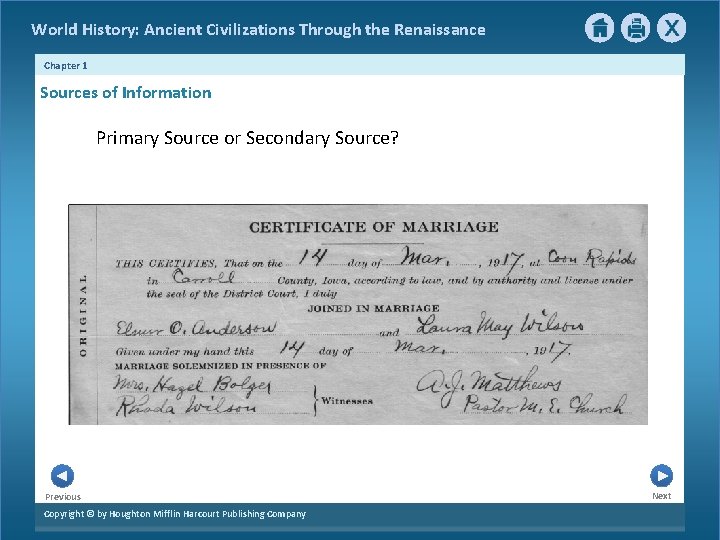 World History: Ancient Civilizations Through the Renaissance
X
Chapter 1
Sources of Information
Primary Source or Secondary Source?
ORIGINAL
CERTIFICATE OF MARRIAGE
THIS CERTIFIES, That on the 14 day of Mar. , 1917, at Coon Rapids
in Carroll County, Iowa, according to law, and by authority and license under
the seal of the District Court, I duly
JOINED IN MARRIAGE
Elmer O. Anderson and Laura May Wilson
Given under my hand this 14 day of Mar. , 1917.
MARRIAGE SOLEMNIZED IN PRESENCE OF
Mrs. Hazel Bolger
Rhoda Wilson
Witnesses
A. J. Matthews
Pastor M. E. Church
Previous
Next
Copyright © by Houghton Mifflin Harcourt Publishing Company